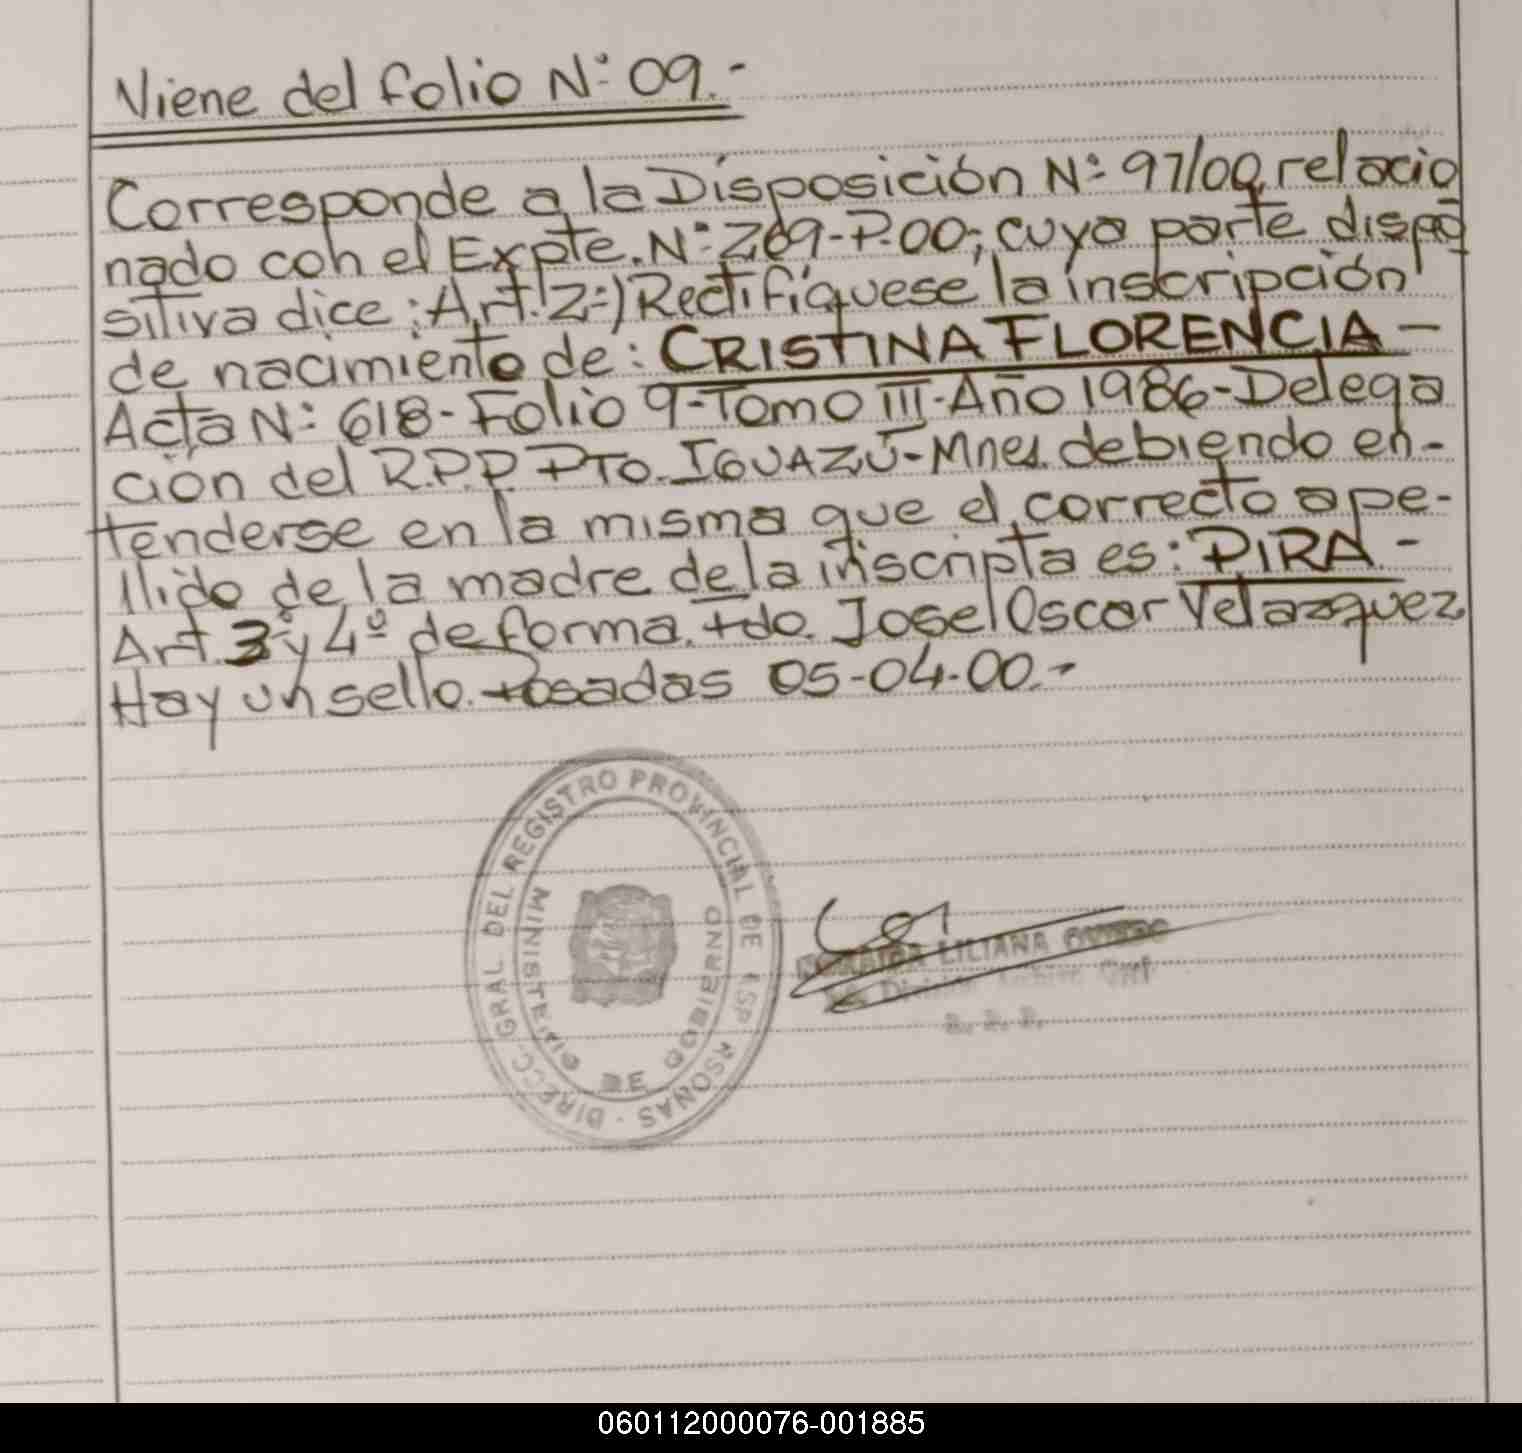 Viene del folio N° 09.-
Corresponde a la Disposición N° 97/00, relacio
nado con el Expte. N° 269-P-00; cuya parte dispo
sitiva dice: Art. 2°) Rectifíquese la inscripción
de nacimiento de: CRISTINA FLORENCIA -
Acta N° 618 - Folio 9 - Tomo III - Año 1986 - Delega
ción del R.P.P. PTO. IGUAZÚ - Mnes. debiendo en-
tenderse en la misma que el correcto ape-
llido de la madre de la inscripta es: PIRA -
Art. 3° y 4° de forma. Fdo. Jose Oscar Velazquez
Hay un sello. Posadas 05-04-00.-
DIRECC. GRAL DEL REGISTRO PROVINCIAL DE LAS PERSONAS -
MINISTERIO DE GOBIERNO
LILIANA OVIEDO
División Archivo Gral
R. P. P.
060112000076-001885